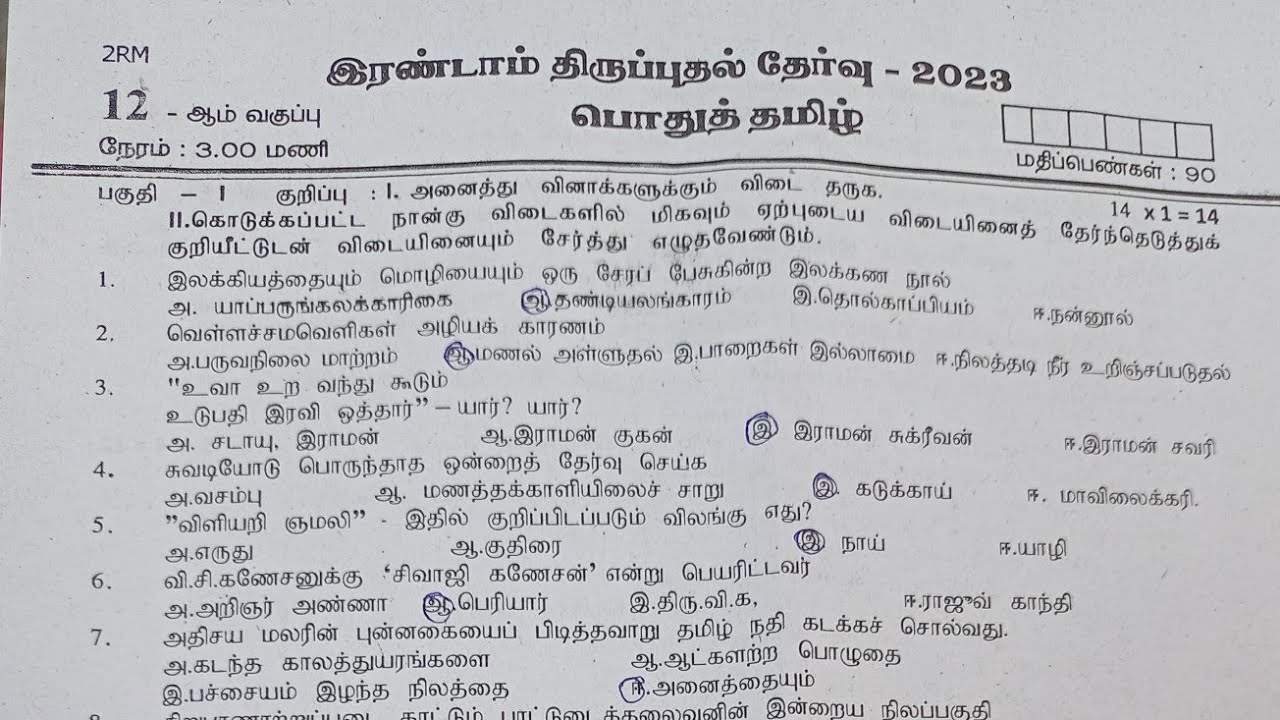 2RM
இரண்டாம் திருப்புதல் தேர்வு - 2023
12 - ஆம் வகுப்பு
பொதுத் தமிழ்
நேரம் : 3.00 மணி
மதிப்பெண்கள் : 90
பகுதி - I குறிப்பு : I. அனைத்து வினாக்களுக்கும் விடை தருக.
14 x 1 = 14
II.கொடுக்கப்பட்ட நான்கு விடைகளில் மிகவும் ஏற்புடைய விடையினைத் தேர்ந்தெடுத்துக்
குறியீட்டுடன் விடையினையும் சேர்த்து எழுதவேண்டும்.
1. இலக்கியத்தையும் மொழியையும் ஒரு சேரப் பேசுகின்ற இலக்கண நூல்
அ. யாப்பருங்கலக்காரிகை ஆ தண்டியலங்காரம் இ.தொல்காப்பியம் ஈ.நன்னூல்
2. வெள்ளச்சமவெளிகள் அழியக் காரணம்
அ.பருவநிலை மாற்றம் ஆ மணல் அள்ளுதல் இ.பாறைகள் இல்லாமை ஈ.நிலத்தடி நீர் உறிஞ்சப்படுதல்
3. "உவா உற வந்து கூடும்
உடுபதி இரவி ஒத்தார்” – யார்? யார்?
அ. சடாயு, இராமன் ஆ.இராமன் குகன் இ இராமன் சுக்ரீவன் ஈ.இராமன் சவரி
4. சுவடியோடு பொருந்தாத ஒன்றைத் தேர்வு செய்க
அ.வசம்பு ஆ. மணத்தக்காளியிலைச் சாறு இ. கடுக்காய் ஈ. மாவிலைக்கரி.
5. ”விளியறி ஞமலி” - இதில் குறிப்பிடப்படும் விலங்கு எது?
அ.எருது ஆ.குதிரை இ நாய் ஈ.யாழி
6. வி.சி.கணேசனுக்கு ‘சிவாஜி கணேசன்’ என்று பெயரிட்டவர்
அ.அறிஞர் அண்ணா ஆ.பெரியார் இ.திரு.வி.க, ஈ.ராஜுவ் காந்தி
7. அதிசய மலரின் புன்னகையைப் பிடித்தவாறு தமிழ் நதி கடக்கச் சொல்வது.
அ.கடந்த காலத்துயரங்களை ஆ.ஆட்களற்ற பொழுதை
இ.பச்சையம் இழந்த நிலத்தை ஈ.அனைத்தையும்
8. சிறுபாணாற்றுப்படை காட்டும் பாட்டுடைத்தலைவனின் இன்றைய நிலப்பகுதி